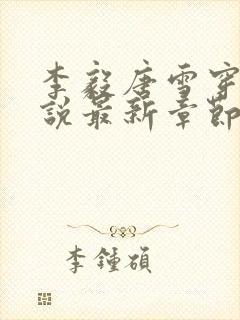 李毅唐雪穿
說最新章節
李鍾碩